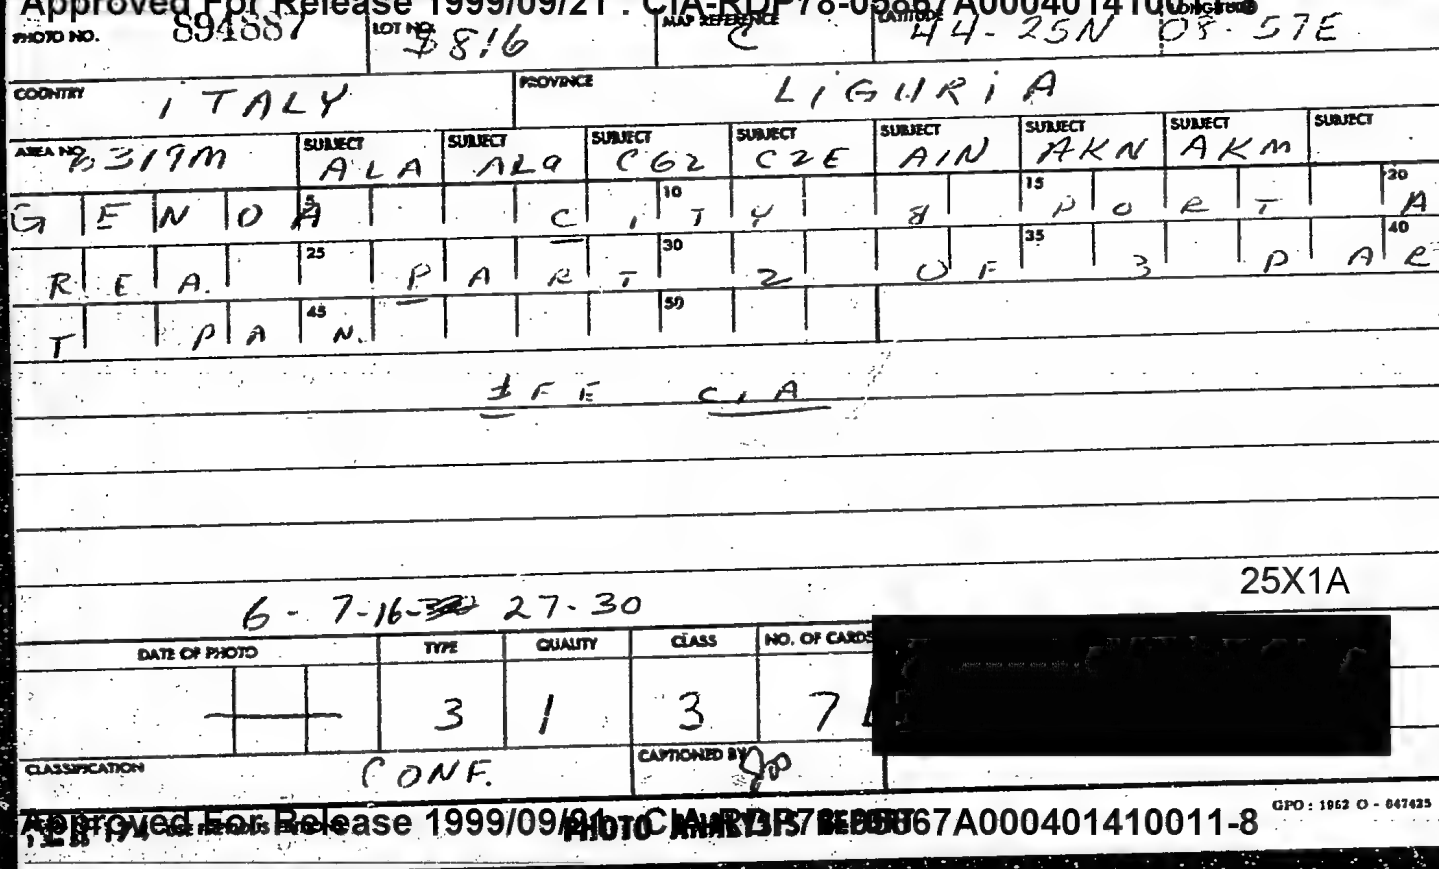 Approved For Release 1999/09/21 : CIA-RDP78-05867A000401410011-8
PHOTO NO. 894887 LOT NO. 8816 MAP REFERENCE C LATITUDE 44-25N LONGITUDE 08-57E
COUNTRY iTALY PROVINCE LiGURiA
AREA NO. 6319M SUBJECT ALA SUBJECT AL9 SUBJECT CG2 SUBJECT C2E SUBJECT AIN SUBJECT AKN SUBJECT AKM SUBJECT
GENOA 5 CiTY 10 & 15 PORT 20 A
REA. 25 PART 30 2 OF 35 3 PAR 40
T PAN. 45 50
1FE CiA
6 - 7-16- 27-30
25X1A
DATE OF PHOTO TYPE QUALITY CLASS NO. OF CARDS
3 1 3 7
CLASSIFICATION CONF. CAPTIONED BY
GPO : 1962 O - 647425
Approved For Release 1999/09/21 : CIA-RDP78-05867A000401410011-8
USE PREVIOUS EDITIONS PHOTO ANALYSIS REPORT